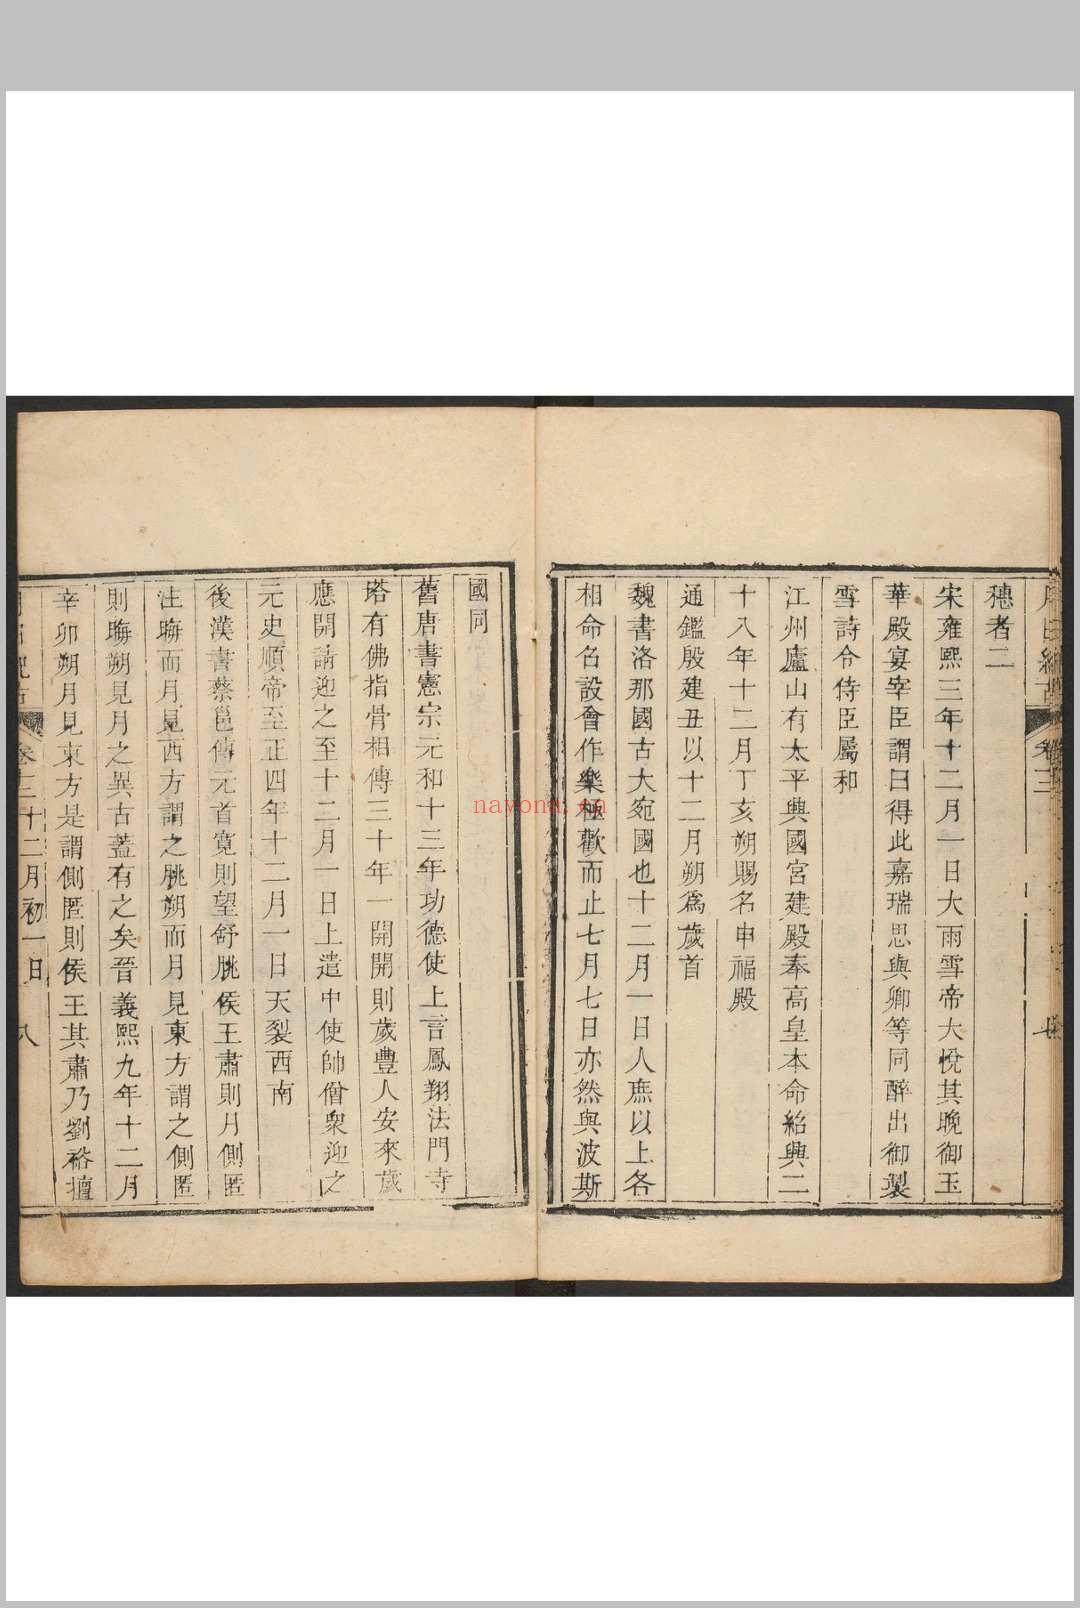 穗者二
宋雍熙三年十二月一日大雨雪帝大悅其晚御玉
華殿宴宰臣謂曰得此嘉瑞思與卿等同醉出御製
雪詩令侍臣屬和
江州廬山有太平興國宮建殿奉高皇本命紹興二
十八年十二月丁亥朔賜名申福殿
通鑑殷建丑以十二月朔爲歲首
魏書洛那國古大宛國也十二月一日人庶以上各
相命名設會作樂極歡而止七月七日亦然與波斯
國同
舊唐書憲宗元和十三年功德使上言鳳翔法門寺
塔有佛指骨相傳三十年一開開則歲豐人安來歲
應開請迎之至十二月一日上遣中使帥僧眾迎之
元史順帝至正四年十二月一日天裂西南
後漢書蔡邕傳元首寬則望舒朓侯王肅則月側匿
注晦而月見西方謂之朓朔而月見東方謂之側匿
則晦朔見月之異古蓋有之矣晉義熙九年十二月
辛卯朔月見東方是謂側匿則侯王其肅乃劉裕擅
卷十二十二月初一日 八
nayona.cn